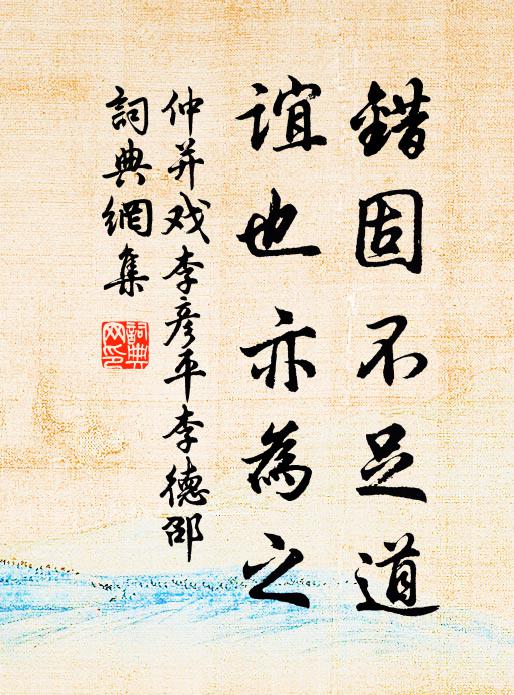 錯固不足道
誼也亦為之
仲并戏李彦平李德邵
詞典網集
詞典
网印